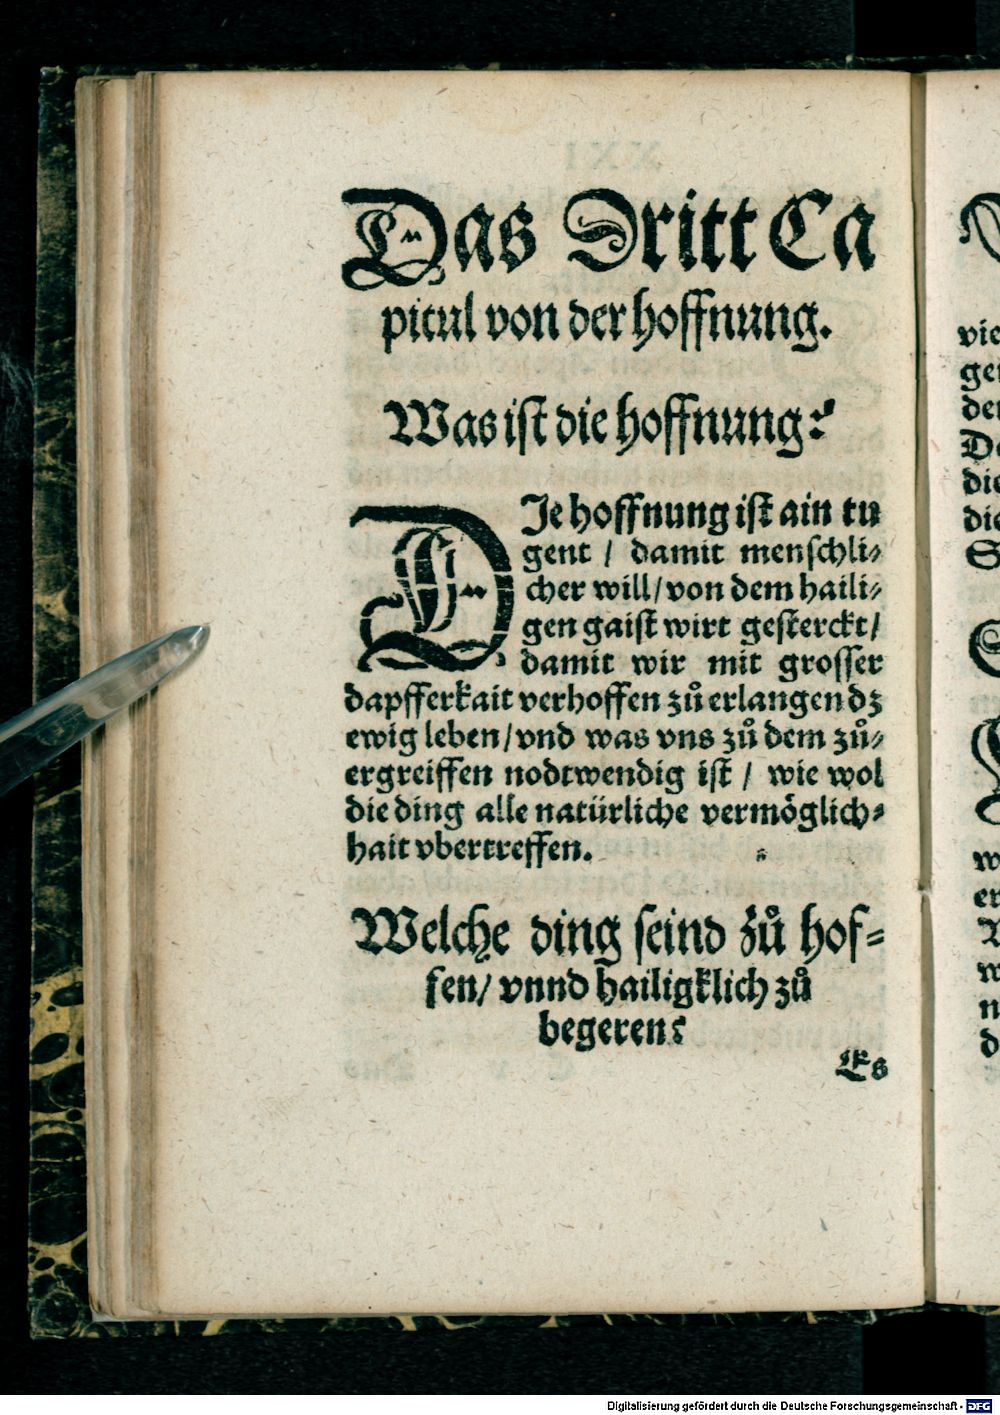 Das Dritt Ca
pitul von der hoffnung.
Was ist die hoffnung?
DIe hoffnung ist ain tu
gent / damit menschli⸗
cher will/ von dem haili⸗
gen gaist wirt gesterckt/
damit wir mit grosser
dapfferkait verhoffen zů erlangen dz
ewig leben/ vnd was vns zů dem zů⸗
ergreiffen nodtwendig ist / wie wol
die ding alle natürliche vermöglich⸗
hait vbertreffen.
Welche ding seind zů hof⸗
fen/ vnnd hailigklich zů
begeren?
Es
vie
gen
den
die
die
S
w
er
w
n
d
Digitalisierung gefördert durch die Deutsche Forschungsgemeinschaft - DFG